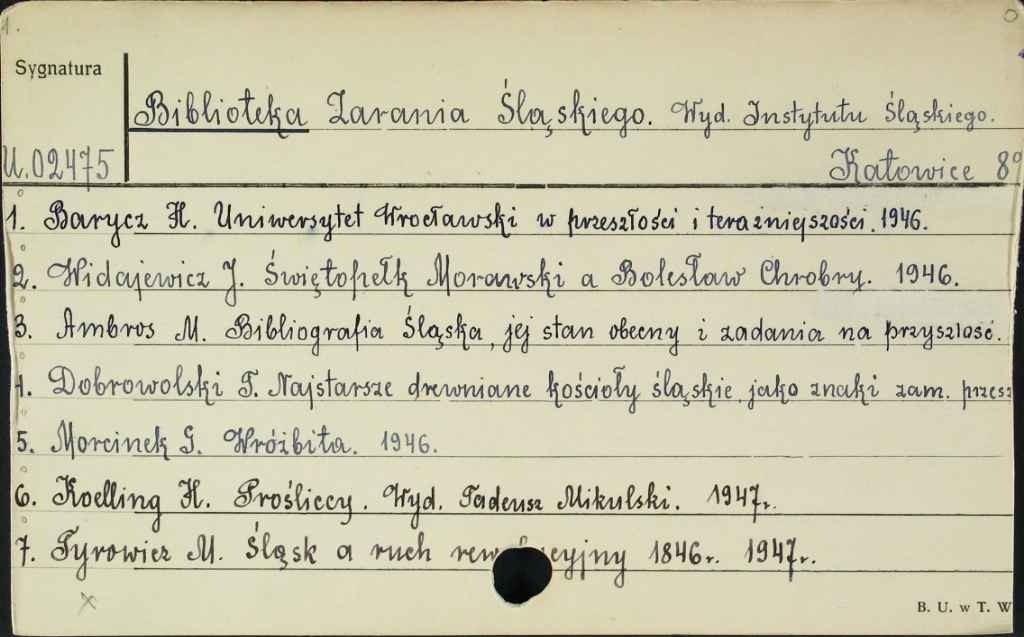 Sygnatura
Biblioteka Zarania Śląskiego. Wyd. Instytutu Śląskiego.
U.02475 Katowice 8°
1. Barycz H. Uniwersytet Wrocławski w przeszłości i teraźniejszości. 1946.
2. Widajewicz J. Świętopełk Morawski a Bolesław Chrobry. 1946.
3. Ambros M. Bibliografia Śląska, jej stan obecny i zadania na przyszłość.
4. Dobrowolski T. Najstarsze drewniane kościoły śląskie, jako znaki zam. przesz
5. Morcinek G. Wróżbita. 1946.
6. Koelling H. Prośliccy. Wyd. Tadeusz Mikulski. 1947r.
7. Tyrowicz M. Śląsk a ruch 1846r. 1947r.
B. U. w T. W